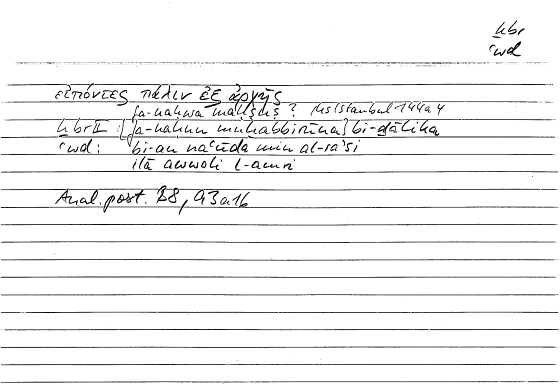 ḫbr
ʿwd
εἰπόντες πάλιν ἐξ ἀρχῆς
fa-naḥwa ? Ms Istanbul 144a4
ḫbr II : [fa-naḥnu muḫabbirūna] bi-ḏālika
ʿwd : bi-an naʿūda min al-raʾsi
ilā awwali l-amri
Anal. post. B8, 93a16